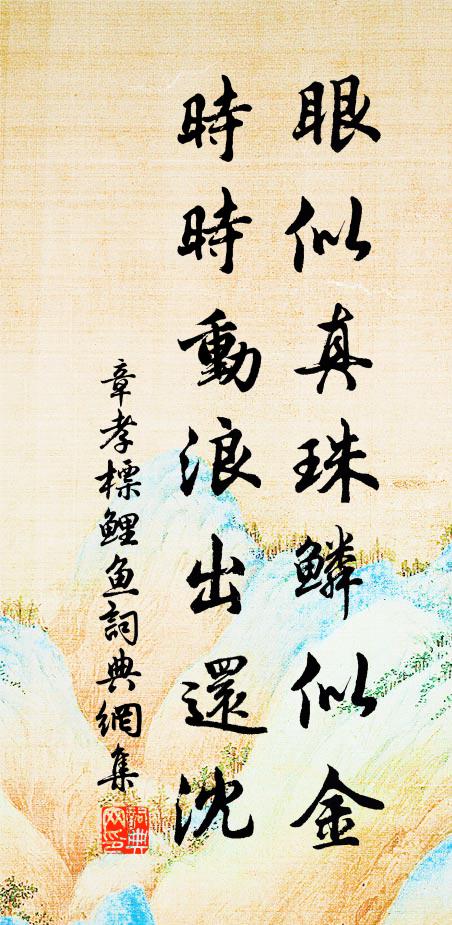 眼似真珠鳞似金
時時動浪出還沈
章孝標鲤鱼詞典網集
詞典網印